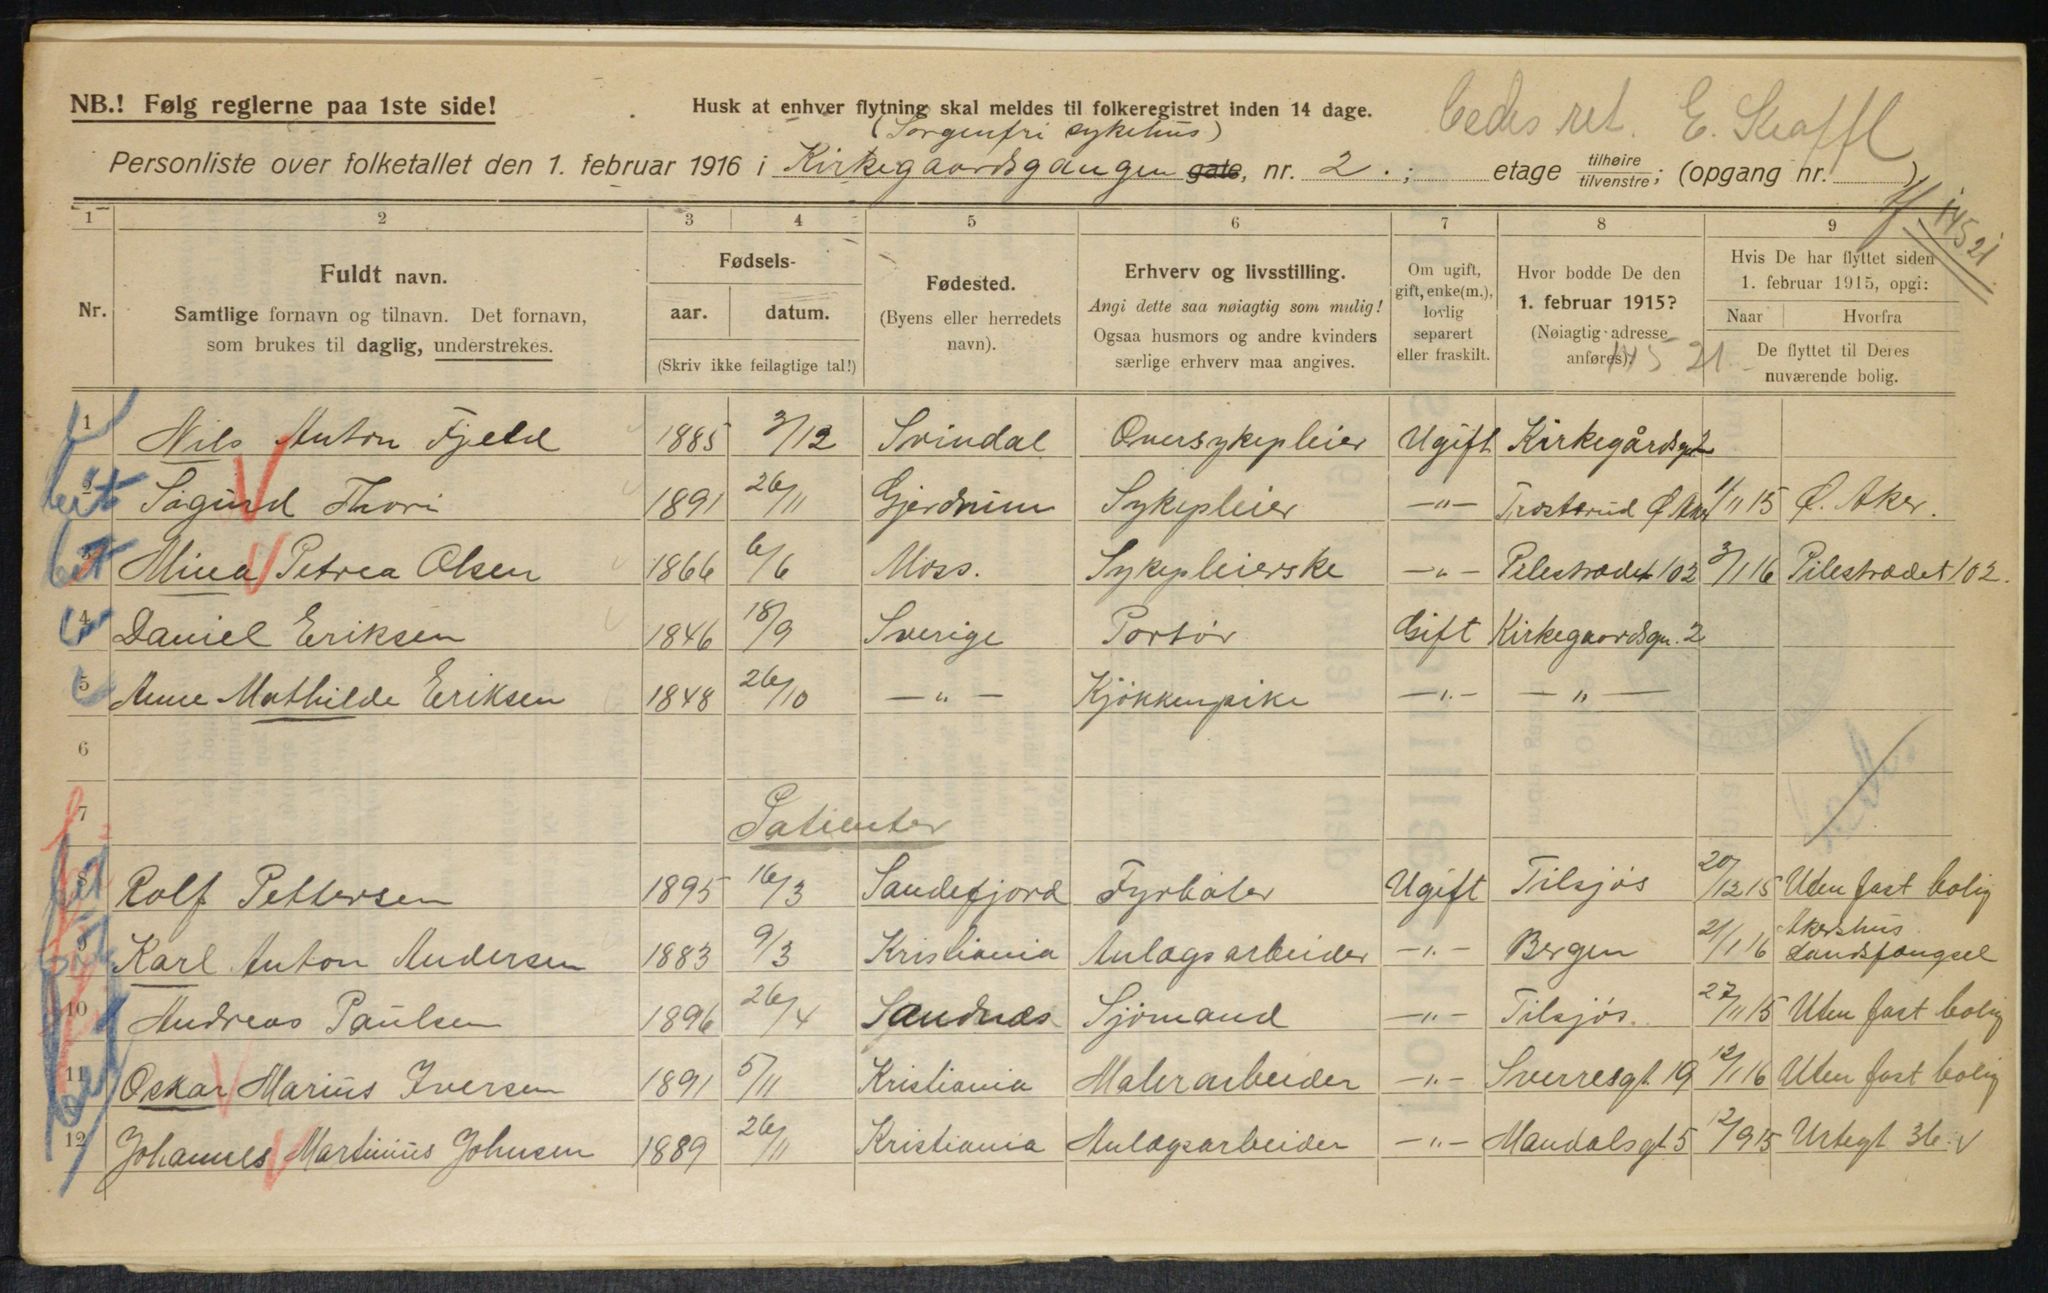 NB.! Følg reglerne paa 1ste side!
Husk at enhver flytning skal meldes til folkeregistret inden 14 dage.
E. Skaffl
(Sorgenfri sykehus)
Personliste over folketallet den 1. februar 1916 i Kirkegaardsgangen gate, nr. 2. ; etage tilhøire / tilvenstre; (opgang nr. )
14521
1 2 3 4 5 6 7 8 9
Nr.
Fuldt navn.
Samtlige fornavn og tilnavn. Det fornavn,
som brukes til daglig, understrekes.
Fødsels-
aar. datum.
(Skriv ikke feilagtige tal!)
Fødested.
(Byens eller herredets
navn).
Erhverv og livsstilling.
Angi dette saa nøiagtig som mulig!
Ogsaa husmors og andre kvinders
særlige erhverv maa angives.
Om ugift,
gift, enke(m.),
lovlig
separert
eller fraskilt.
Hvor bodde De den
1. februar 1915?
(Nøiagtig adresse
anføres).
14521
Hvis De har flyttet siden
1. februar 1915, opgi:
Naar Hvorfra
De flyttet til Deres
nuværende bolig.
1 Nils Anton Fjeld 1885 3/12 Svindal Oversykepleier Ugift Kirkegårdsgt 2
2 Sigurd Thori 1891 26/11 Gjerdrum Sykepleier -"- Trosterud Ø. Aker 1/11 15 Ø. Aker.
3 Mina Petrea Olsen 1866 6/6 Moss. Sykepleierske -"- Pelestrædet 102 3/1 16 Pilestrædet 102.
4 Daniel Eriksen 1846 18/9 Sverige Portør Gift Kirkegaardsgn. 2
5 Anne Mathilde Eriksen 1848 26/10 -"- Kjøkkenpike -"- -"-
6
7 Patienter
8 Rolf Pettersen 1895 16/3 Sandefjord Fyrbøter Ugift Tilsjøs 20/12 15 Uten fast bolig
9 Karl Anton Andersen 1883 9/3 Kristiania Anlægsarbeider -"- Bergen 21/1 16 Akershus Landsfængsel
10 Andreas Paulsen 1896 26/4 Sandnæs Sjømand -"- Tilsjøs. 27/11 15 Uten fast bolig
11 Oskar Marius Iversen 1891 5/11 Kristiania Malerarbeider -"- Sverresgt. 19 12/1 16 Uten fast bolig
12 Johannes Martinius Johnsen 1889 26/11 Kristiania Anlægsarbeider -"- Mandalsgt. 5 12/9 15 Urtegt 36. v